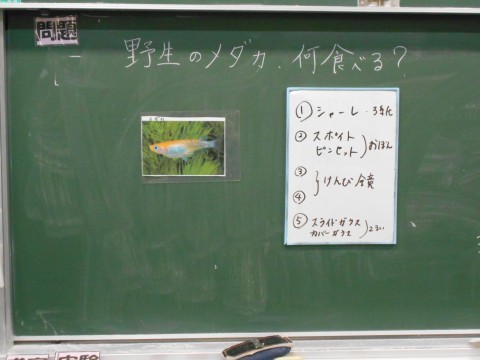 問題
野生のメダカ、何食べる?
メダカ
① シャーレ
② スポイト
ピンセット
おぼん
③
④
けんび鏡
⑤ スライドガラス
カバーガラス
実験